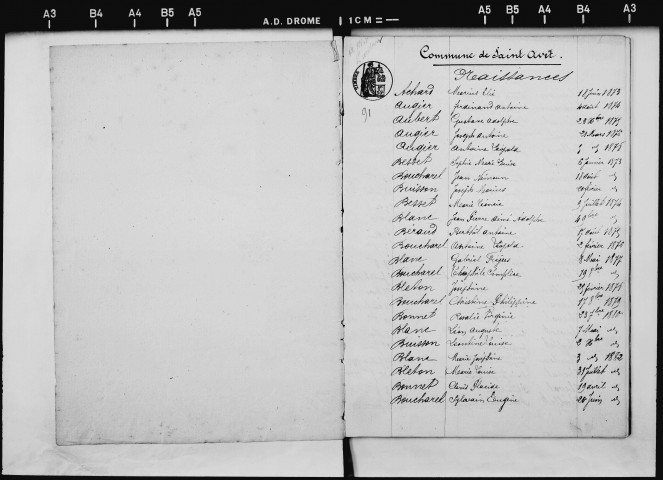 A3 B4 A4 B5 A5 A.D. DROME 1 CM = A5 B5 A4 B4 A3
Commune de Saint Avit.
Naissances
91
Achard Marius Elie 18 Juin 1873
Augier Ferdinand Antoine 4 Août 1874
Aubert Gustave Adolphe 1875
Augier Joseph Antoine 21 Mars 1875
Augier Antoine Léopold 1875
Besset Sophie Marie Louise 5 Janvier 1873
Boucharel Jean 11 Août
Buisson Joseph Marius
Besset Marie Léonie Juillet 1874
Blanc Jean Pierre Aimé Adolphe
Béraud Antoine 17 Août 1875
Boucharel Antoine Léopold 2 février
Blanc Gabriel Mai 1877
Boucharel Théophile
Bleton Joséphine février 1878
Boucharel Christine Philippine 17 1879
Bonnet Rosalie Virginie 23 1880
Blanc Léon Auguste 7 Mai
Buisson Léontine Louise
Blanc Marie Joséphine
Bleton Marie Louise Juillet
Bonnet 19 avril
Boucharel Sylvain Eugène 28 Juin